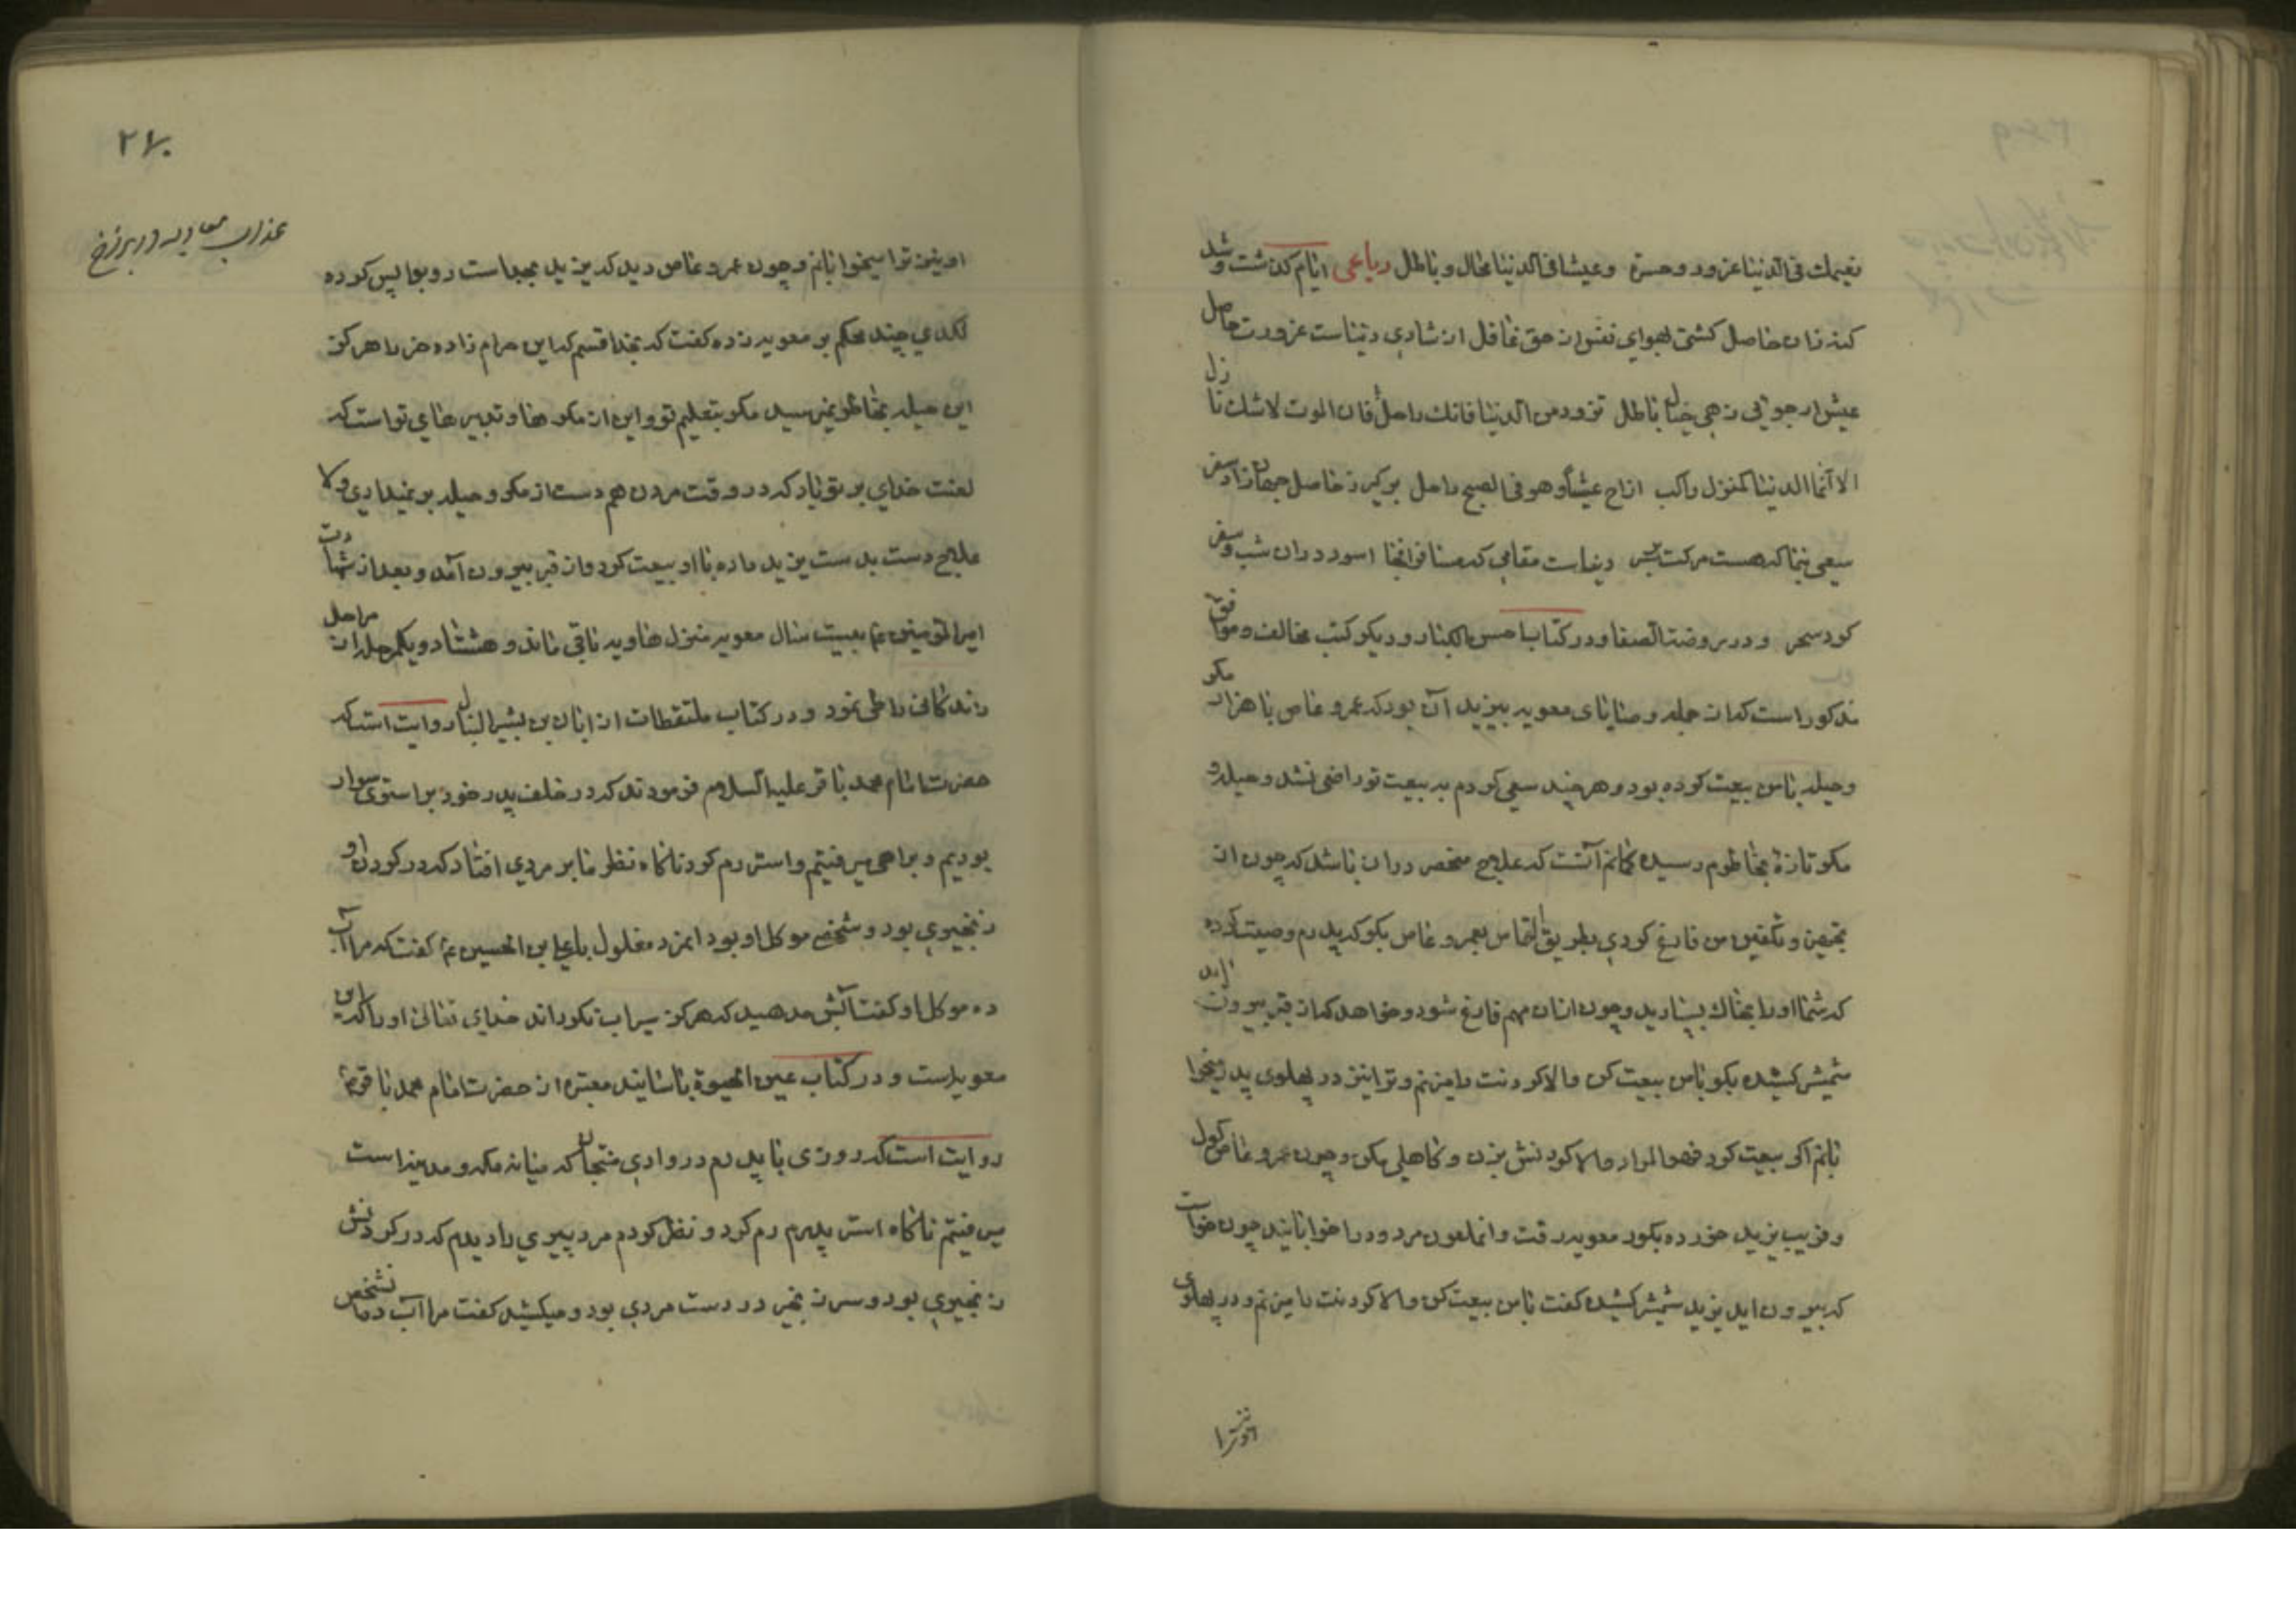 نعیمك فی الدنیا غرور و حسرة وعیشك فی الدنیا محال و باطل رباعی ایام گذشت و شد
عیش ار جوانی زهی خیال باطل تزود من الدنیا فانك راحل فان الموت لاشك نازل
الا انما الدنیا كمنزل راكب اناخ عشیاً وهو فی الصبح راحل برگیر ز حاصل جهان زاد سفر
سعی بنما كه هست مرگت بسر دنیاست مقامی كه مسافر آنجا آسود در آن شب و سفر
كرد سحر و در روضة الصفا و در كتاب احسن الكبار و دیگر كتب مخالف و موافق
مذكور است كه از جمله وصایای معویه بیزید آن بود كه عمرو عاص با هزار مكر
و حیله با من بیعت كرده بود و هر چند سعی كردم به بیعت تو راضی نشد و حیله و
مكر تازهٔ بخاطرم رسیده گمانم آنست كه علاج منحصر در آن باشد كه چون از
تجهیز و تكفین من فارغ گردی بطریق التماس بعمرو عاص بگو كه پدرم وصیت كرده
كه شما او را بخاك بسپارید و چون از آن مهم فارغ شود و خواهد كه از قبر بیرون آید
شمشیر كشیده بگو با من بیعت كن والا گردنت را میزنم و ترا نیز در پهلوی پدر میخوا
بانم اگر بیعت كرد فهو المراد والا گردنش بزن و كاهلی مكن و چون عمرو عاص گول
و فریب یزید خورده بگور معویه رفت و انملعون مردود را خوابانید چون خواست
كه بیرون اید یزید شمشیر كشیده گفت با من بیعت كن والا گردنت را میزنم و در پهلوی
او نیز ترا
۲۷۰
عذاب معاویه در برزخ
او نیز ترا میخوابانم و چون عمرو عاص دید كه یزید بجد است رو بوا پس كرده
لگدی چند محكم بر معویه زده گفت كه بخدا قسم كه این حرام زاده خر را هرگز
این حیله بخاطر نمیرسید مگر بتعلیم تو و این از مكرها و تدبیرهای تو است كه
لعنت خدای بر تو باد كه در وقت مردن هم دست از مكر و حیله بر نمیداری و لا
علاج دست بدست یزید داده با او بیعت كرد و از قبر بیرون آمد و بعد از شهادت
امیرالمؤمنین ع بیست سال معویه منزل هاویه باقی ماند و هشتاد و یكمرحله از مراحل
زندگانی را طی نمود و در كتاب ملتقطات از ابان بن بشیر النبال روایت است كه
حضرت امام محمد باقر علیه السلام فرمودند كه در خلف پدر خود بر استری سوار
بودیم و براهی میرفتیم و استر رم كرد ناگاه نظر ما بر مردی افتاد كه در گردن او
زنجیری بود و شخصی موكل او بود انمرد مغلول با علی بن الحسین ع گفت كه مرا آب
ده موكل او گفت آبش مدهید كه هرگز سیراب نگرداند خدای تعالی او را كه این
معویه است و در كتاب عین الحیوة باسانید معتبره از حضرت امام محمد باقر ع
روایت است كه روزی با پدرم در وادی ضجنان كه میانه مكه و مدینه است
میرفتیم ناگاه استر پدرم رم كرد و نظر كردم مرد پیری را دیدم كه در گردنش
زنجیری بود و سر زنجیر در دست مردی بود و میكشید گفت مرا آب ده